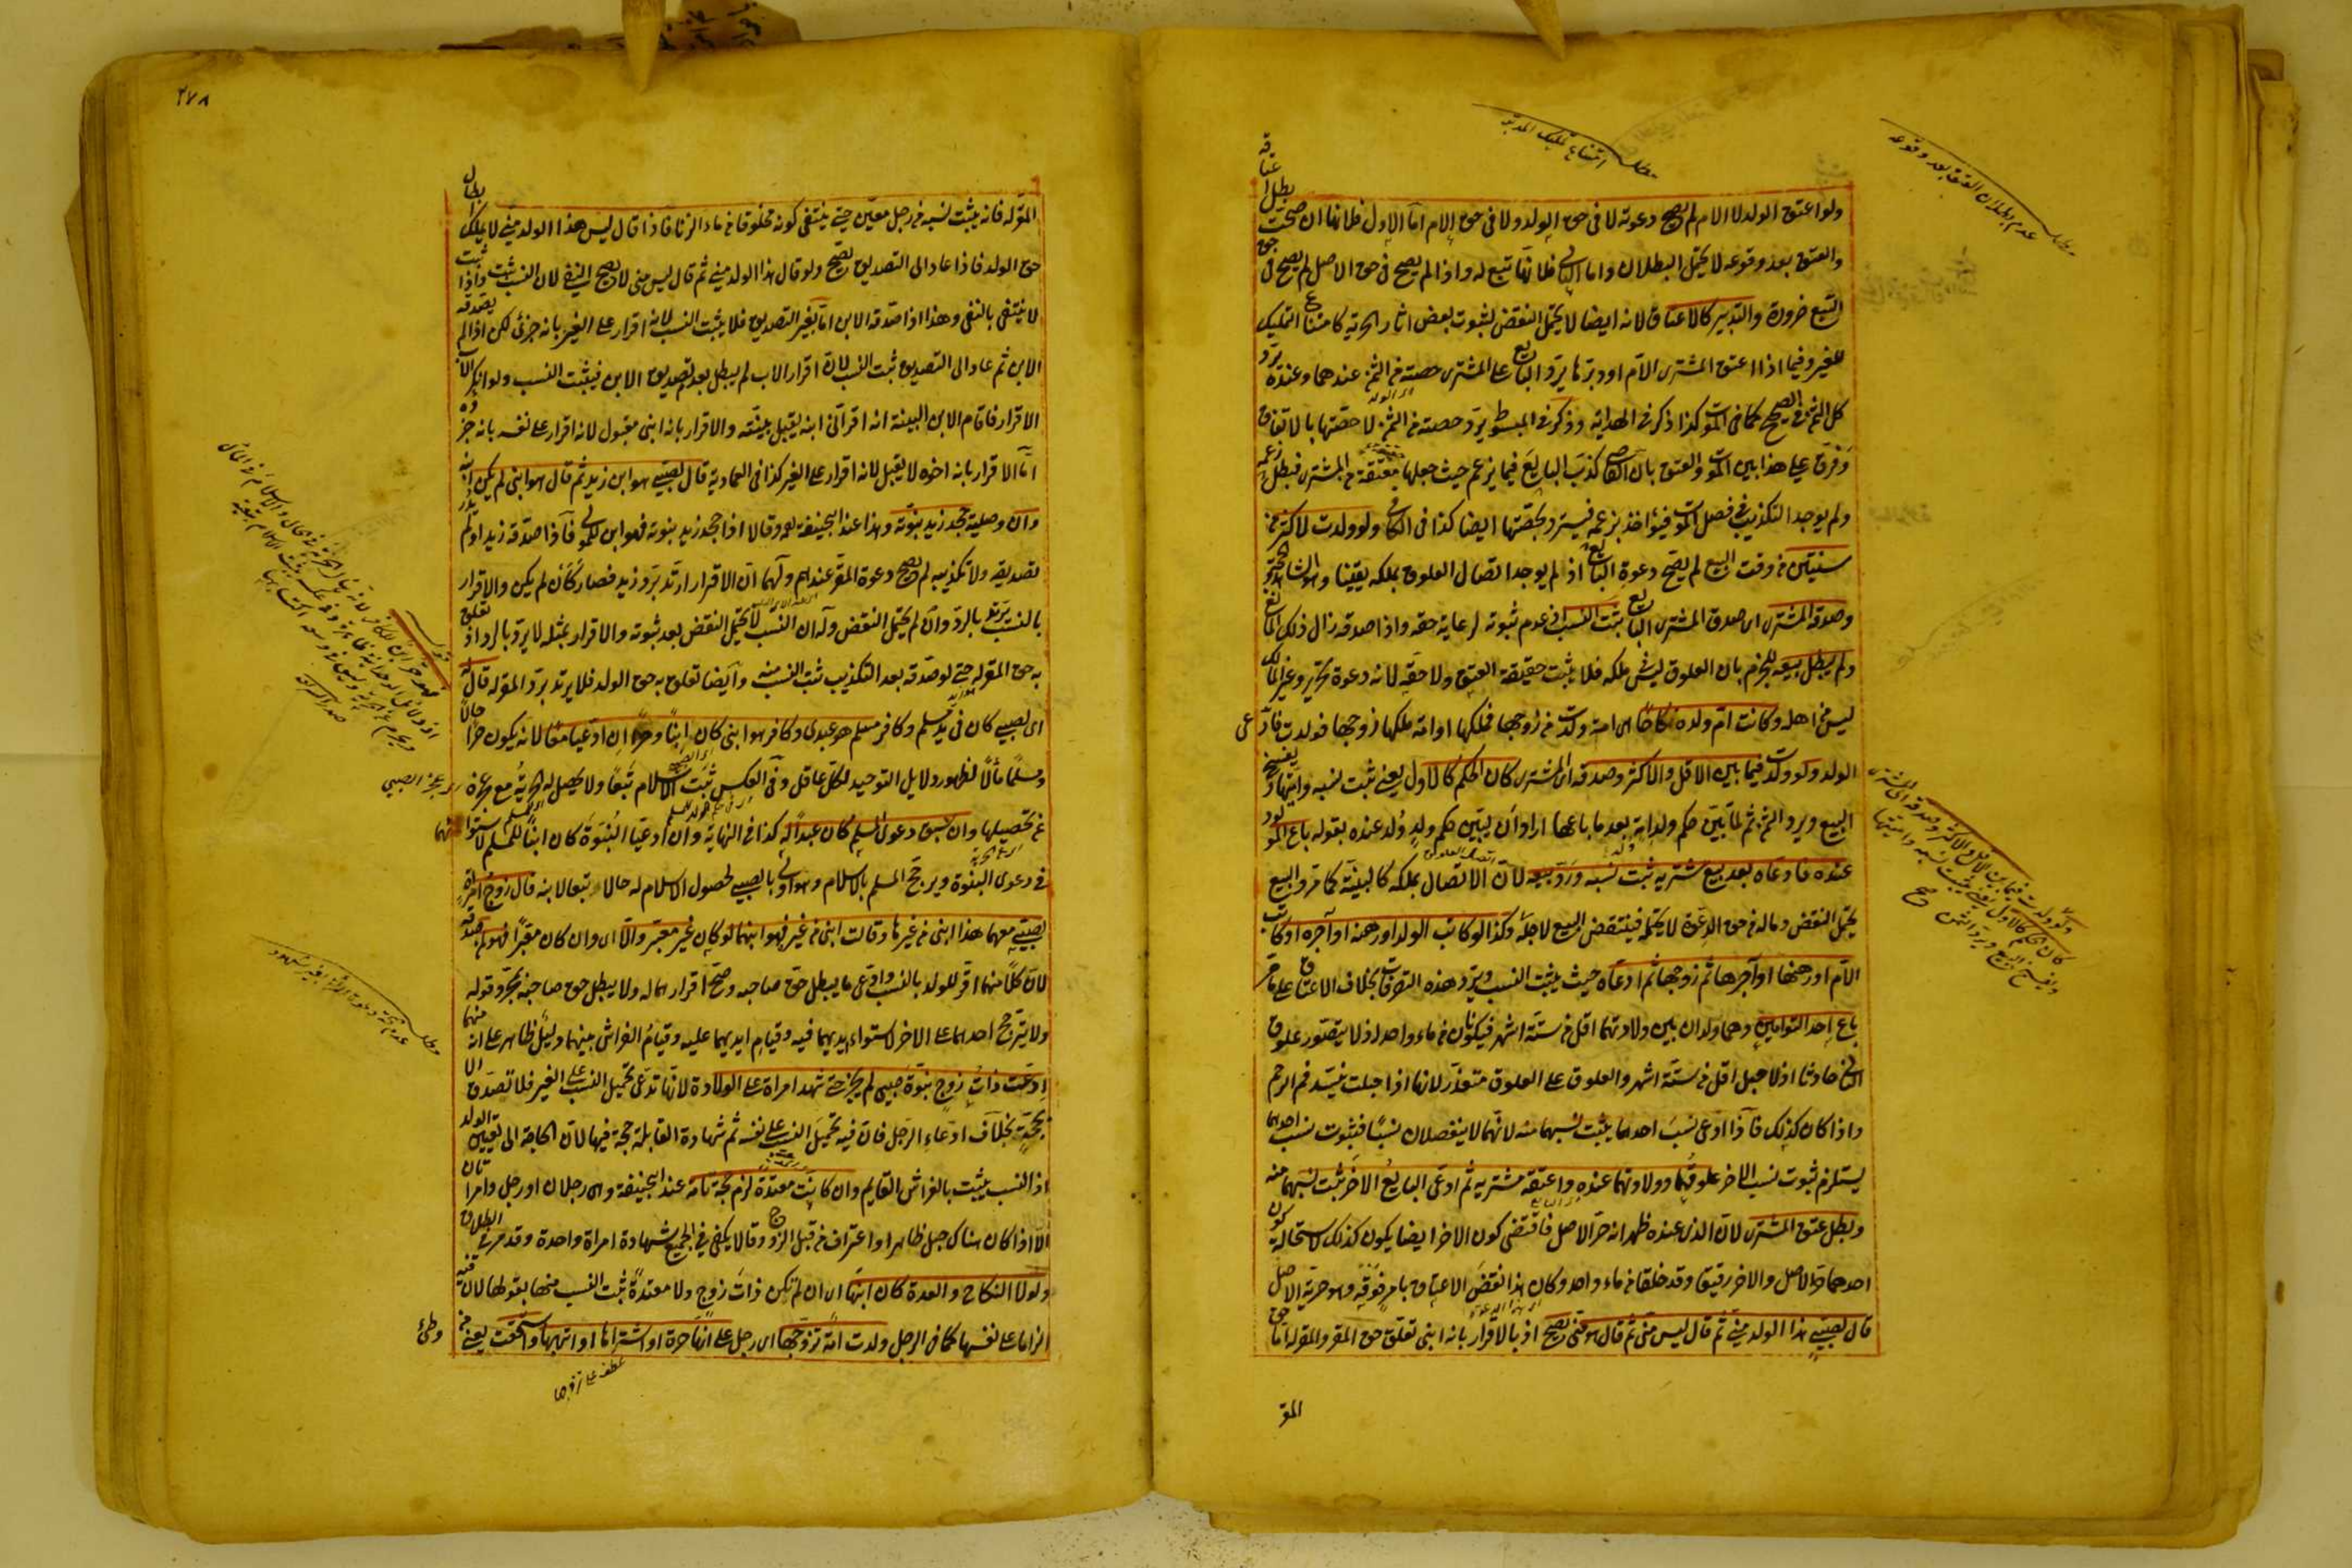 ولو اعتق الولد لا الام لم يصح دعوته لا في حق الولد ولا في حق الام اما الاول فلانها ان صحت بطل اعتاقه
والعتق بعد وقوعه لا يحتمل البطلان واما الثاني فلانها تبع له واذا لم يصح في حق الاصل لم يصح في حق
التبع ضرورة والتدبير كالاعتاق لانه ايضا لا يحتمل النقض لثبوت بعض اثار الحرية كامتناع التمليك
للغير وفيما اذا اعتق المشتري الام او دبرها يرد البايع على المشتري حصته من الثمن عندهما وعنده يرد
كل الثمن في الصحيح كما في الموت كذا ذكر في الهداية وذكر في المبسوط يرد حصته من الثمن لا حصتها بالاتفاق
وفرق على هذا بين الموت والعتق بان القاضي كذب البايع فيما يزعم حيث جعلها معتقة من المشتري فبطل زعمه
ولم يوجد التكذيب في فصل الموت فيؤاخذ بزعمه فيسترد بحصتها ايضا كذا في الكافي ولو ولدت لاكثر من
سنتين من وقت البيع لم يصح دعوة البايع اذ لم يوجد اتصال العلوق بملكه يقينا وهو الشاهد والحجة
وصدقه المشتري اي صدق المشتري البايع ثبت النسب اذ عدم ثبوته لرعاية حقه واذا صدقه زال ذلك المانع
ولم يبطل بيعه للجزم بان العلوق ليس في ملكه فلا يثبت حقيقة العتق ولا حقه لانه دعوة تحرير وغير المالك
ليس من اهله وكانت ام ولده نكاحا اي امة ولدت من زوجها فملكها او امة ملكها زوجها فولدت فادعى
الولد ولو ولدت فيما بين الاقل والاكثر وصدقه اي المشتري كان الحكم كالاول يعني ثبت نسبه واميتها ويفسخ
البيع ويرد الثمن ثم لما بين حكم ولد امة بعد ما باعها اراد ان يبين حكم ولد ولد عنده بقوله باع المولود
عنده فادعاه بعد بيع مشتريه ثبت نسبه ورد بيعه لان الاتصال بملكه كالبينة كما مر والبيع
يحتمل النقض وماله من حق الدعوة لا يحتمله فينتقض البيع لاجله وكذا لو كاتب الولد او رهنه او آجره او كاتب
الام او رهنها او آجرها ثم زوجها ثم ادعاه حيث يثبت النسب ويرد هذه التصرفات بخلاف الاعتاق على ما مر
باع احد التوأمين وهما ولدان بين ولادتهما اقل من ستة اشهر فيكونان من ماء واحد اذ لا يتصور علوق
الثاني حادثا اذ لا حبل اقل من ستة اشهر والعلوق على العلوق متعذر لانها اذا حبلت ينسد فم الرحم
واذا كان كذلك فاذا ادعى نسب احدهما يثبت نسبهما منه لانهما لا ينفصلان نسبا فثبوت نسب احدهما
يستلزم ثبوت نسب الاخر علوقهما وولادتهما عنده واعتقه مشتريه ثم ادعى البايع الاخر ثبت نسبهما منه
وبطل عتق المشتري لان الذي عنده ظهر انه حر الاصل فاقتضى كون الاخر ايضا يكون كذلك لاستحالة كون
احدهما حر الاصل والاخر رقيق وقد خلقا من ماء واحد وكان هذا نقض الاعتاق بامر فوقه وهو حرية الاصل
قال لصبي هذا الولد مني ثم قال ليس مني ثم قال هو مني يصح اذ بالاقرار بانه ابني تعلق حق المقر والمقر له اما حق
المقر
مطلب امتناع تمليك المدبر
مطلب عدم بطلان العتق بعد وقوعه
ولو ولدت فيما بين الاقل والاكثر وصدقه اي المشتري
كان الحكم كالاول يعني يثبت نسبه واميتها
ويفسخ البيع ويرد الثمن صح
٢٧٨
المقر له فانه يثبت نسبه من رجل معين حتى ينتفي كونه مخلوقا من ماء الزنا فاذا قال ليس هذا الولد مني لا يملك ابطال
حق الولد فاذا عاد الى التصديق يصح ولو قال هذا الولد مني ثم قال ليس مني لا يصح النفي لان النسب ثبت واذا ثبت
لا ينتفي بالنفي وهذا اذا صدقه الابن اما بغير التصديق فلا يثبت النسب لانه اقرار على الغير بانه جزئي لكن اذا لم يصدقه
الابن ثم عاد الى التصديق ثبت النسب لان اقرار الاب لم يبطل بعدم تصديق الابن فيثبت النسب ولو انكر الاب
الاقرار فاقام الابن البينة انه اقر اني ابنه يقبل بينته والاقرار بانه ابني مقبول لانه اقرار على نفسه بانه جزؤه
اما الاقرار بانه اخوه لا يقبل لانه اقرار على الغير كذا في العمادية قال لصبي هو ابن زيد ثم قال هو ابني لم يكن ابنه
وان وصلية جحد زيد بنوته وهذا عند ابي حنيفة رحمه وقالا اذا جحد زيد بنوته فهو ابن للمولى فاذا صدقه زيد او لم يدر
تصديقه ولا تكذيبه لم يصح دعوة المقر عندهم ولهما ان الاقرار ارتد برد زيد فصار كأن لم يكن والاقرار
بالنسب يرتد بالرد وان لم يحتمل النقض وله ان النسب لا يحتمل النقض بعد ثبوته والاقرار بمثله لا يرد بالرد اذ تعلق
به حق المقر له حتى لو صدقه بعد التكذيب ثبت النسب منه وايضا تعلق به حق الولد فلا يرتد برد المقر له قال
اي لصبي كان في يد مسلم وكافر مسلم هو عبدي وكافر هو ابني كان ابنا وحرا ان ادعيا معا لانه يكون حرا حالا
ومسلما مآلا لظهور دلايل التوحيد لكل عاقل وفي العكس ثبت الاسلام تبعا ولا يحصل له الحرية مع عجزه
عن تحصيلها وان سبق دعوى المسلم كان عبدا له كذا في النهاية وان ادعيا البنوة كان ابنا للمسلم لاستوائهما
في دعوى البنوة ويرجح المسلم بالاسلام وهو اولى بالصبي لحصول الاسلام له حالا تبعا لابيه قال زوج امرأة
لصبي معهما هذا ابني من غيرها وقالت ابني من غيره فهو ابنهما لو كان غير معبر والا اي وان كان معبرا فهو لمن صدقه
لان كلا منهما اقر للولد بالنسب وادعى ما يبطل حق صاحبه وصح اقرارهما له ولا يبطل حق صاحبه بمجرد قوله
ولا يترجح احدهما على الاخر لاستواء ايديهما فيه وقيام ايديهما عليه وقيام الفراش بينهما دليل ظاهر على انه منهما
ادعت ذات زوج بنوة صبي لم يجز حتى تشهد امرأة على الولادة لانها تدعي تحميل النسب على الغير فلا تصدق الا
بحجة بخلاف ادعاء الرجل فان فيه تحميل النسب على نفسه ثم شهادة القابلة حجة فيها لان الحاجة الى تعيين الولد
اذ النسب يثبت بالفراش القايم وان كانت معتدة لزم حجة تامة عند ابي حنيفة وهي رجلان او رجل وامرأتان
الا اذا كان هناك حبل ظاهر او اعتراف من قبل الزوج وقالا يكفي في الجميع شهادة امرأة واحدة وقد مر في الطلاق
ولولا النكاح والعدة كان ابنها اي ان لم تكن ذات زوج ولا معتدة ثبت النسب منها بقولها لان فيه
الزاما على نفسها كما في الرجل ولدت امة تزوجها اي رجل على انها حرة او اشتراها او اتهبها واستحقت يعني من
وطئ
عطف على تزوجها
اي عجز الصبي
صدر الشريعة